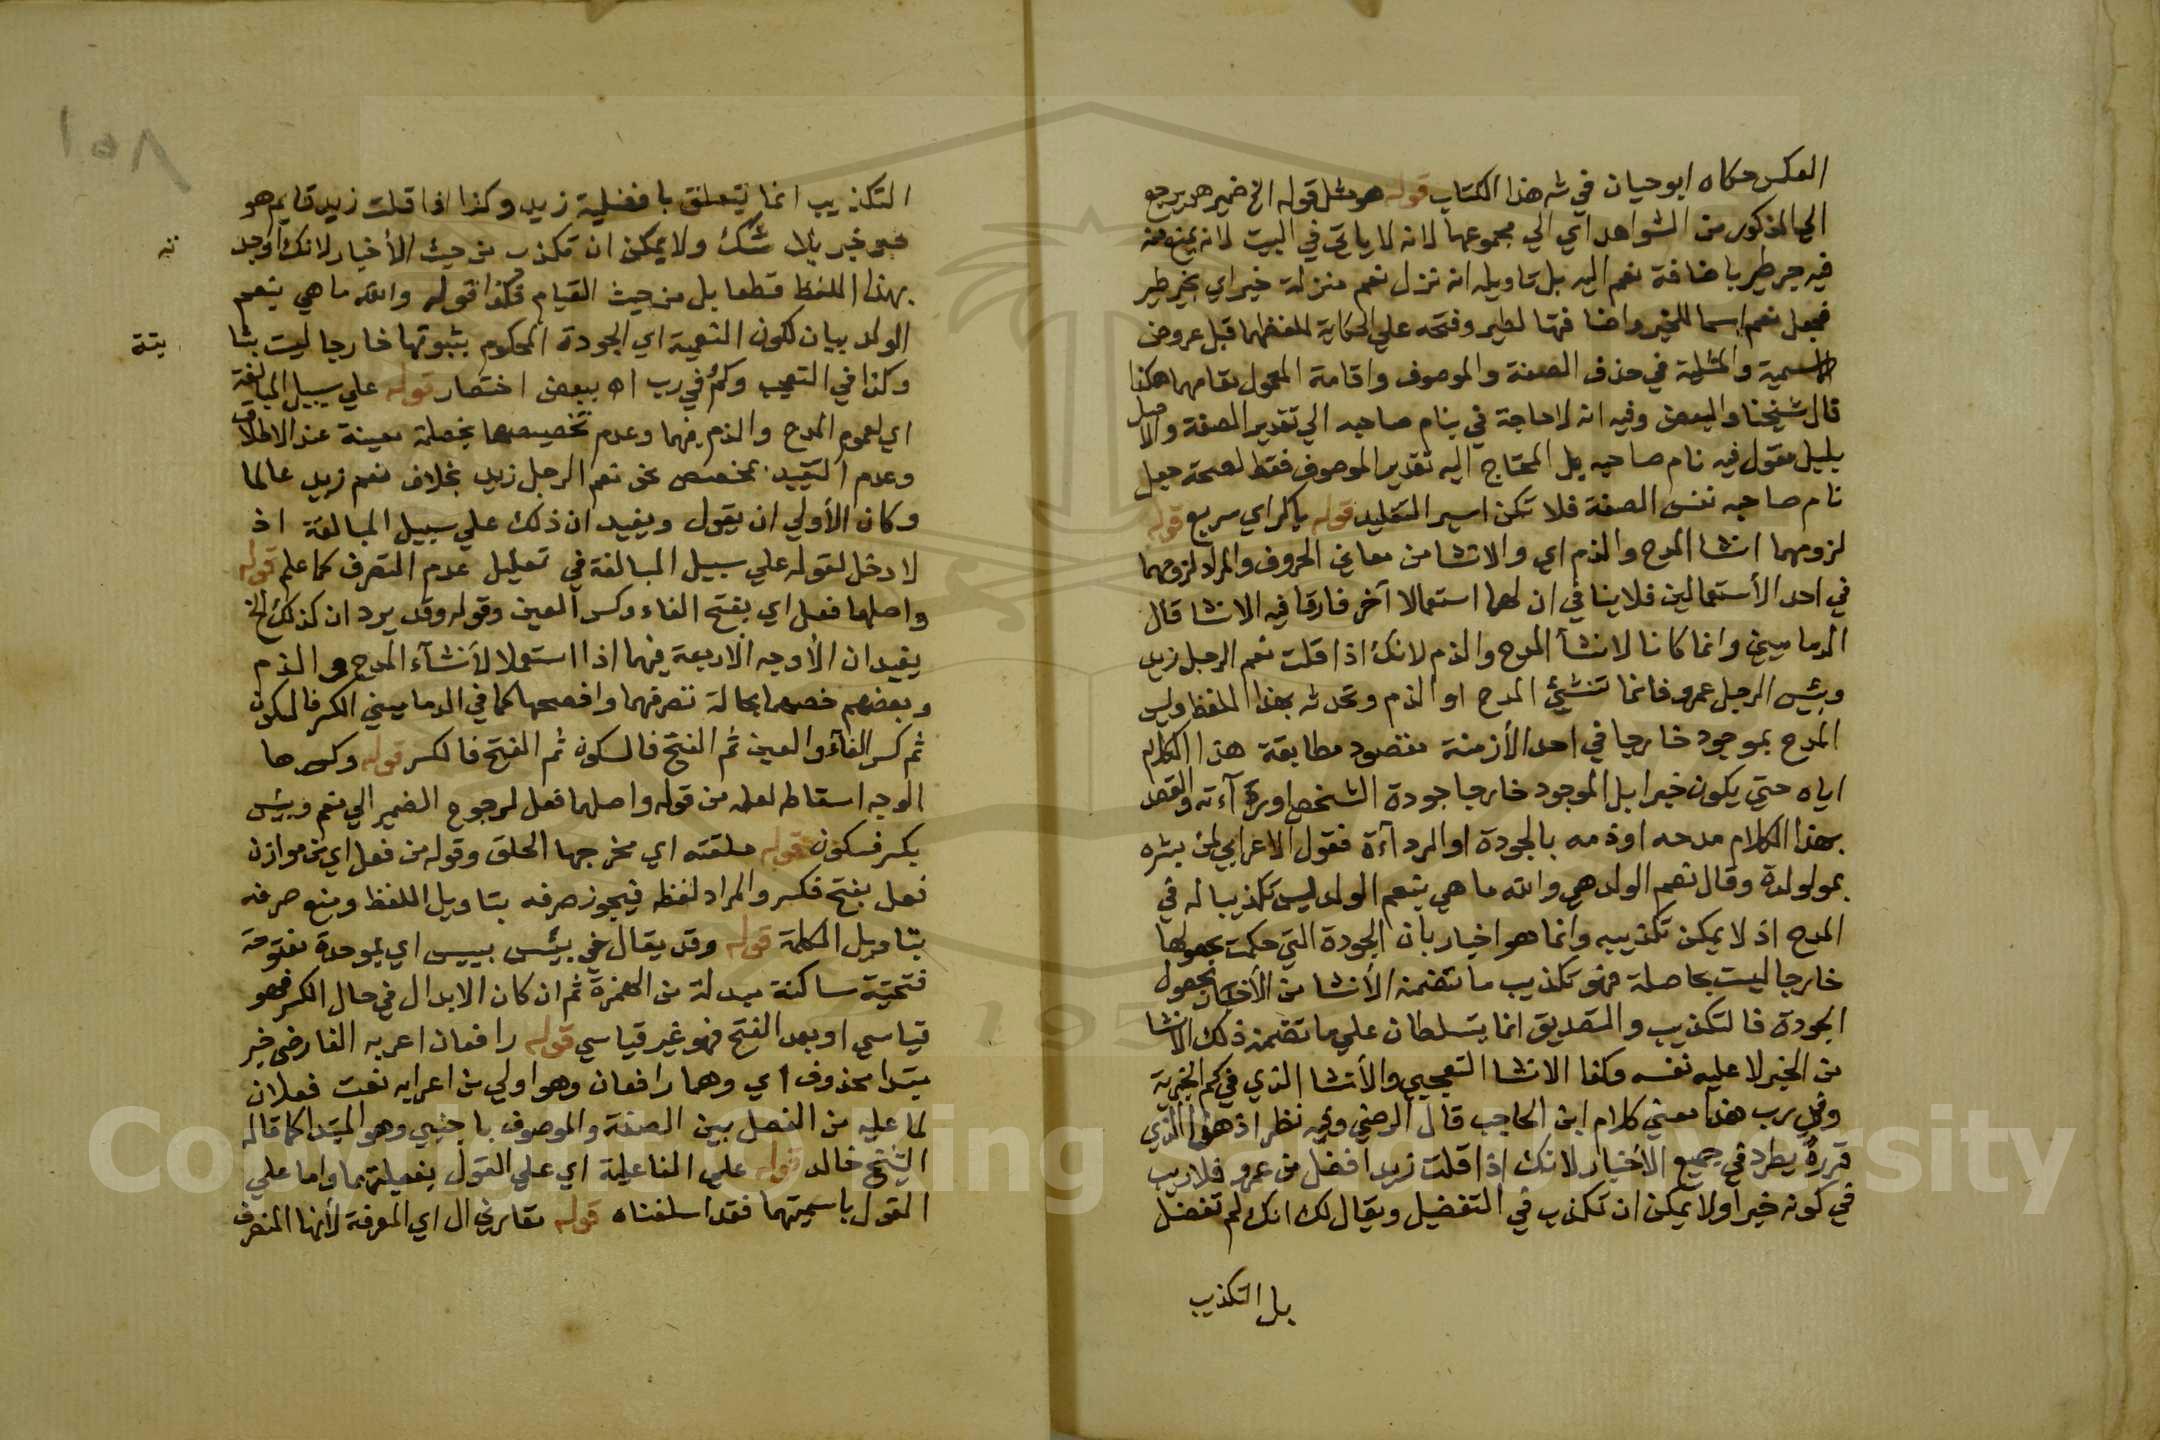 العكس حكاه ابو حيان في شرح هذا الكتاب قوله هو مثل قوله الخ ضمير هو يرجع
الي المذكور من الشواهد اي الي مجموعها لانه لا ياتي في البيت لانه يمنع منه
فيه جر طير باضافة نعم اليه بل تاويله انه نزل نعم منزلة خير اي بخير طير
فجعل نعم اسما للخير واضافها لطير وفتحه علي الحكاية للفظها قبل عروض
الاسمية والمثلية في حذف الصفة والموصوف واقامة المعمول مقامهما هكذا
قال شيخنا والبعض وفيه انه لا حاجة في بنام صاحبه الي تقدير الصفة والاصل
بليل مقول فيه نام صاحبه بل المحتاج اليه تقدير الموصوف فقط لصحة جعل
نام صاحبه نفس الصفة فلا تكن اسير التقليد قوله باكر اي سريع قوله
لزومهما انشا المدح والذم اي والانشا من معاني الحروف والمراد لزومهما
في احد الأستعمالين فلا ينافي ان لهما استعمالا آخر فارقا فيه الانشا قال
الدماميني وانما كانا لانشآ المدح والذم لانك اذا قلت نعم الرجل زيد
وبئس الرجل عمرو فانما تنشئ المدح او الذم وتحدثه بهذا اللفظ وليس
المدح بموجود خارجيا في احد الأزمنة مقصود مطابقة هذا الكلام
اياه حتي يكون خبرا بل الموجود خارجا جودة الشخص او ردآءته والقصد
بهذا الكلام مدحه او ذمه بالجودة او الردآءة فقول الاعرابي لمن بشره
بمولودة وقال نعم الولد هي والله ما هي بنعم الولد ليس تكذيبا له في
المدح اذ لا يمكن تكذيبه وانما هو اخبار بان الجودة التي حكمت بحصولها
خارجا ليست بحاصلة فهو تكذيب ما تتضمنه الأنشا من الأخبار بحصول
الجودة فالتكذيب والتصديق انما يتسلطان علي ما تضمنه ذلك الانشا
من الخبر لا عليه نفسه وكذا الانشا التعجبي والأنشا الذي في كم الخبرية
وفي رب هذا معني كلام ابن الحاجب قال الرضي وفيه نظر اذ هذا الذي
قررهُ يطرد في جميع الأخبار لانك اذا قلت زيد افضل من عمرو فلا ريب
في كونه خبرا ولا يمكن ان تكذب في التفضيل ويقال لك انك لم تفضل
بل التكذيب
١٥٨
التكذيب انما يتعلق بافضلية زيد وكذا اذا قلت زيد قايم هو
خبر بلا شك ولا يمكن ان تكذب من حيث الأخبار لانك اوجد
ته
بهذا اللفظ قطعا بل من حيث القيام فكذا قوله والله ما هي بنعم
الولد بيان لكون النعمية اي الجودة المحكوم بثبوتها خارجا ليست بثا
بتة
وكذا في التعجب وكم في رب اه ببعض اختصار قوله علي سبيل المبالغة
اي لعموم المدح والذم فيهما وعدم تخصيصهما بخصلة معينة عند الاطلاق
وعدم التقييد بمخصص نحو نعم الرجل زيد بخلاف نعم زيد عالما
وكان الأولي ان يقول ويفيد ان ذلك علي سبيل المبالغة اذ
لا دخل لقوله علي سبيل المبالغة في تعليل عدم التصرف كما علم قوله
واصلهما فعل اي بفتح الفاء وكسر العين وقوله وقد يرد ان كذلك الخ
يفيد ان الأوجه الاربعة فيهما اذا استعملا لأنشآء المدح والذم
وبعضهم خصها بحالة تصرفهما وافصحها كما في الدماميني الكسر فالسكون
ثم كسر الفآء والعين ثم الفتح فالسكون ثم الفتح فالكسر قوله وكسرها
الوجه اسقاطه لعله من قوله واصلهما فعل لرجوع الضمير الي نعم وبئس
بكسر فسكون قوله حلقته اي مخرجها الحلق وقوله من فعل اي من موازن
فعل بفتح فكسر والمراد لفظه فيجوز صرفه بتاويل اللفظ ومنع صرفه
بتاويل الكلمة قوله وقد يقال في بيئس بييس اي بموحدة مفتوحة
فتحتية ساكنة مبدلة من الهمزة ثم ان كان الابدال في حال الكسر فهو
قياسي او بعد الفتح فهو غير قياسي قوله رافعان اعربه الفارضي خبر
مبتدا محذوف اي وهما رافعان وهو اولي من اعرابه نعت فعلان
لما عليه من الفصل بين الصفة والموصوف باجنبي وهو المبتدا كما قاله
الشيخ خالد قوله علي الفاعلية اي علي القول بفعليتهما واما علي
القول باسميتهما فقد اسلفناه قوله مقارني ال اي المعرفة لأنها المنصرف
Copyright © King Saud University
195